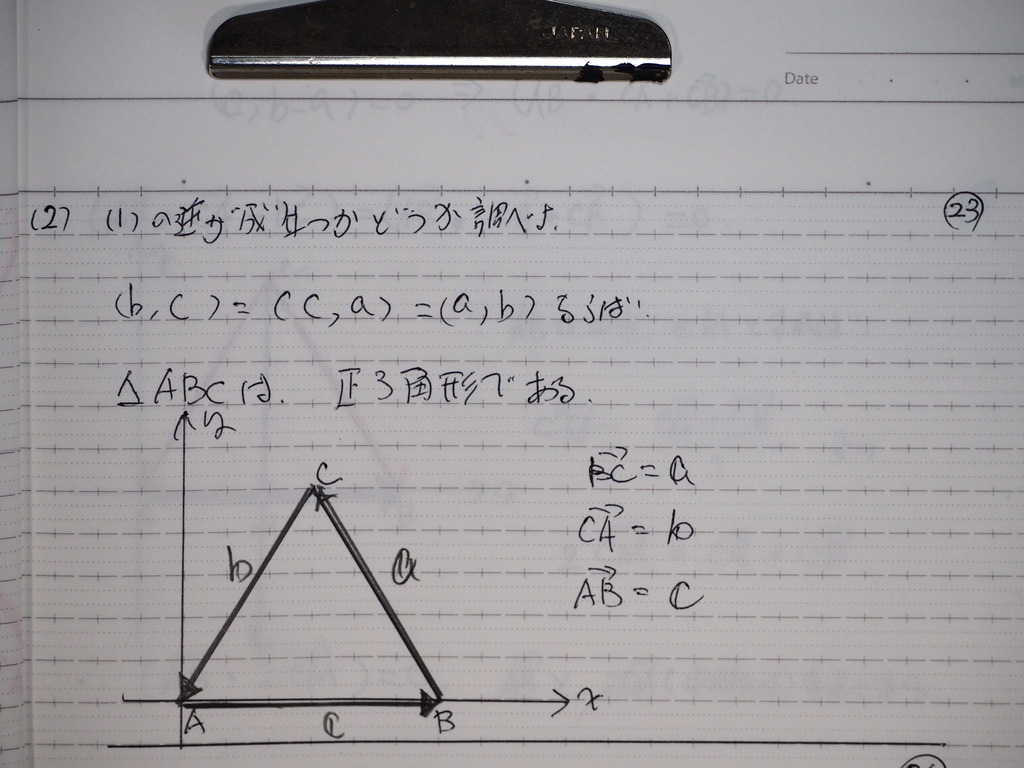 JAPAN
Date
(2) (1)の逆が成立つかどうか調べよ. ㉓
(b, c) = (c, a) = (a, b) ならば.
△ABCは. 正3角形である.
y
C
BC→ = a
CA→ = b
b a
AB→ = c
x
A c B